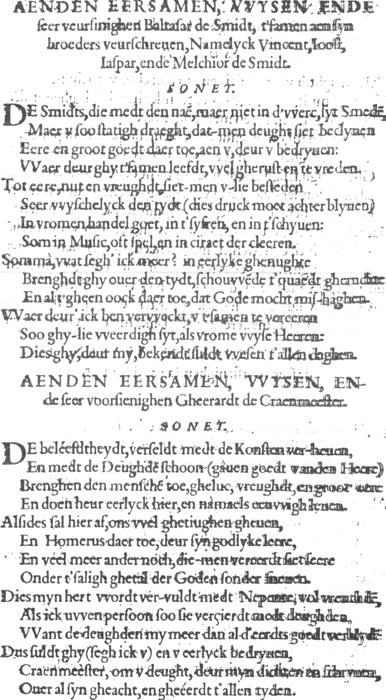 AENDEN EERSAMEN, VVYSEN, ENDE
seer veursinighen Baltasar de Smidt, t'samen aen syn
broeders veurschreuen, Namelyck Vincent, Ioost,
Iaspar, ende Melchior de Smidt.
SONET.
DE Smidts, die medt den naē, maer niet in d'vverc, syt Smedē,
Maer v soo statigh draeght, dat-men deught siet bedynen
Eere en groot goedt daer toe, aen v, deur v bedryuen:
VVaer deur ghy t'samen leefdt, vvel gherust en te vreden.
Tot eere, nut en vreughdt, siet-men v-lie besteden
Seer vvyschelyck den tydt (dies druck moet achter blyuen)
In vromen handel goet, in t'syfren, en in t'schyuen:
Som in Musijc, oft spel, en in ciraet der cleeren.
Somma, vvat segh' ick meer? in eerlyke ghenughte
Brenghdt ghy ouer den tydt, schouvvēde t'quaedt gheruchte
En al t'gheen oock daer toe, dat Gode mocht mis-haghen.
VVaer deur' ick ben vervvckt, v t'samen te vereeren
Soo ghy-lie vveerdigh syt, als vrome vvyse Heeren:
Dies ghy, deur my, bekendt suldt vvesen t'allen daghen.
AENDEN EERSAMEN, VVYSEN, EN-
de seer voorsienighen Gheerardt de Craenmeester.
SONET.
DE beleefdtheydt, verseldt medt de Konsten ver-heuen,
En medt de Deughdē schoon (gauen goedt vanden Heere)
Brenghen den menschē toe, gheluc, vreughdt, en groot eere
En doen heur eerlyck hier, en namaels eeuvvigh leuen.
Alsides sal hier af, ons vvel ghetiughen gheuen,
En Homerus daer toe, deur syn godlyke leere,
En veel meer ander noch, die-men vereerdt siet seere
Onder t'saligh ghetal der Goden sonder sneuen.
Dies myn hert vvordt ver-vuldt medt Nepente, vol vreughdē,
Als ick uvven persoon soo sie verçierdt medt deughden,
VVant de deughden my meer dan al d'eerds goedt verblydē
Dus suldt ghy (segh ick v) en v eerlyck bedryuen,
Craenmeester, om v deught, deur myn dichten en schryuen,
Ouer al syn gheacht, en gheëerdt t'allen tyden.